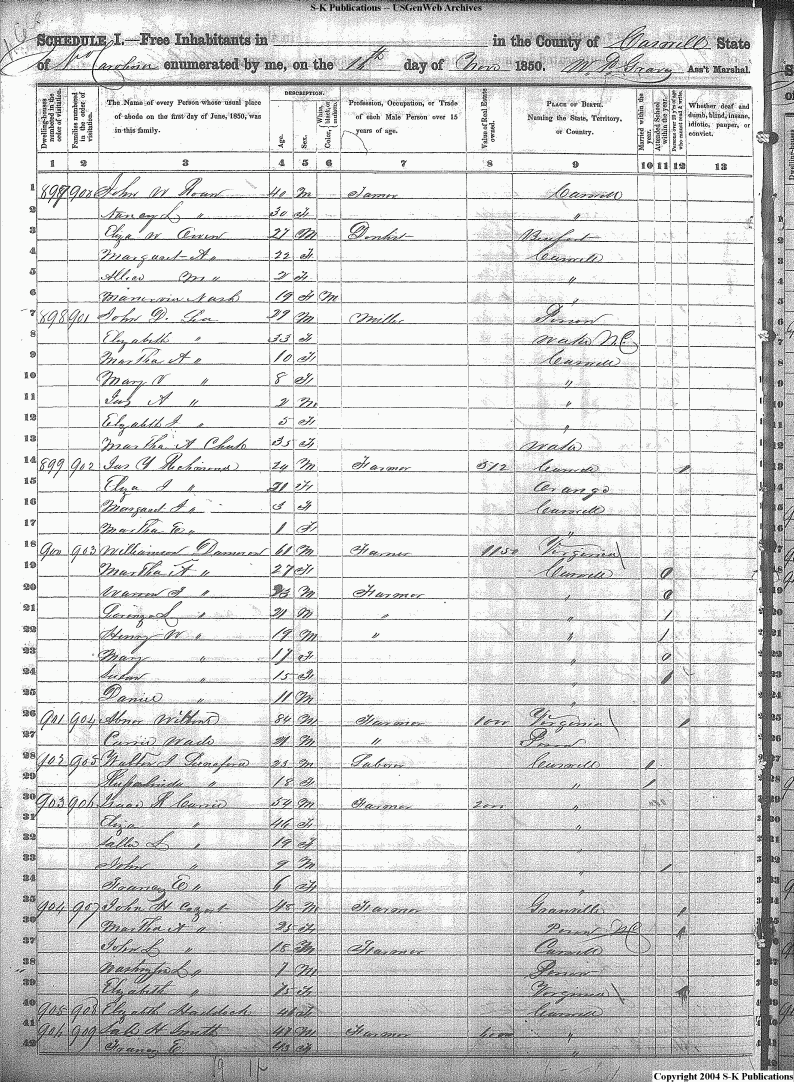 S-K Publications -- USGenWeb Archives
SCHEDULE I.—Free Inhabitants in in the County of Caswell State
of No Carolina enumerated by me, on the day of Nov 1850. Ass't Marshal.
Dwelling-houses numbered in the order of visitation. Families numbered in the order of visitation. The Name of every Person whose usual place of abode on the first day of June, 1850, was in this family. DESCRIPTION. Age. Sex. Color, White, black, or mulatto. Profession, Occupation, or Trade of each Male Person over 15 years of age. Value of Real Estate owned. PLACE OF BIRTH. Naming the State, Territory, or Country. Married within the year. Attended School within the year. Persons over 20 y'rs of age who cannot read & write. Whether deaf and dumb, blind, insane, idiotic, pauper, or convict.
1 2 3 4 5 6 7 8 9 10 11 12 13
1 897 900 John W Roan 40 M Caswell
2 Nancy L " 30 F "
3 Eliza W Owen 27 M Dentist
4 Margaret A " 22 F Caswell
5 M " 2 F "
6 Nash 19 F M "
7 898 901 John D. Lea 29 M Miller Person
8 Elizabeth " 33 F Wake NC
9 Martha A " 10 F Caswell
10 Mary V " 8 F "
11 Jas A " 2 M "
12 Elizabeth J " 5 F "
13 Martha A 35 F Wake
14 899 902 Jas Y Richmond 24 M Farmer 512 Caswell 1
15 Eliza J " 21 F Orange
16 Margaret J " 3 F Caswell
17 Martha E " 1 F "
18 900 903 Williamson Dameron 61 M Farmer 1150 Virginia
19 Martha A " 27 F Caswell
20 Warren J " 23 M Farmer "
21 Lorenzo L " 21 M " " 1
22 Henry W " 19 M " " 1
23 Mary " 17 F "
24 Susan " 15 F " 1
25 Daniel " 11 M "
26 901 904 Abner 84 M Farmer 1000 Virginia 1
27 Currie Wade 21 M " Person
28 902 905 Walter J 23 M Laborer Caswell 1
29 " 18 F " 1
30 903 906 Isaac R Currie 54 M Farmer 2000 "
31 Eliza " 46 F "
32 Sallie L " 19 F "
33 John " 9 M " 1
34 Francy E " 6 F "
35 904 907 John H Cozart 48 M Farmer Granville 1
36 Martha A " 25 F Person NC 1
37 John L " 18 M Farmer Caswell
38 Washington L " 1 M Person
39 Elizabeth " 75 F Virginia
40 905 908 Elizabeth Haddock 46 F Caswell
41 906 909 H Smith 47 M Farmer "
42 Francy E. 43 F "
Copyright 2004 S-K Publications